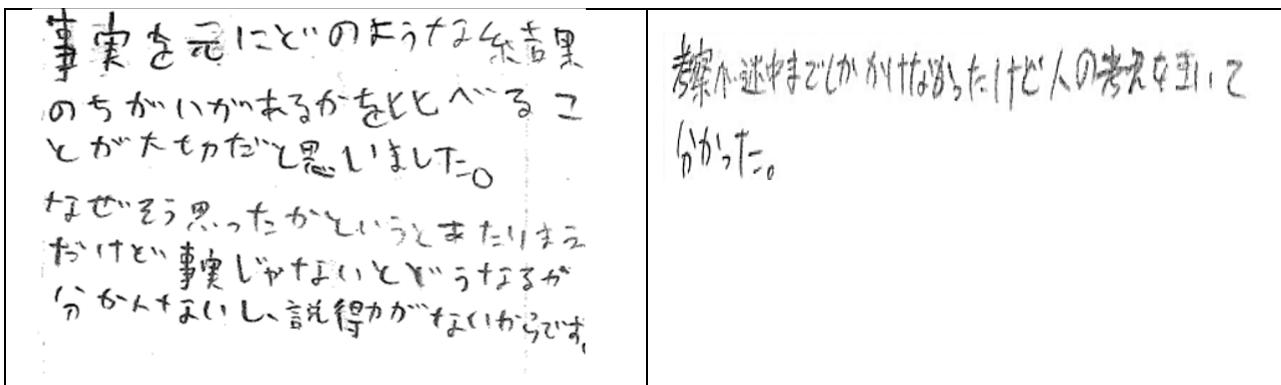 事実を元にどのような結果
のちがいがあるかをととべるこ
とが大切だと思いました。
なぜそう思ったかというとあたりまえ
だけど事実じゃないとどうなるが
分かんないし、説得力がないからです。
考察が途中までしかかけなかったけど人の考えを聞いて
分かった。